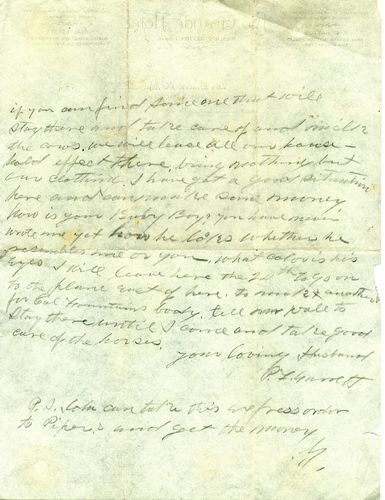 if you can find some one that will
stay there and take care of and milk
the cows. we will leave all our house-
hold effect there, bring nothing but
our clothing. I have got a good situation
here and can make some money
how is your Baby Boy, you have never
wrote me yet how he looks whether he
resembles me or you. What color is his
Eyes I will leave here the 24th to go on
to the plains east of here. to make another
for Col Fountains body. tell our
stay there until I come and take good
care of the horses.
Your loving Husband
P.F. Garrett
P.S. can take this express order
to Piper's and get the money